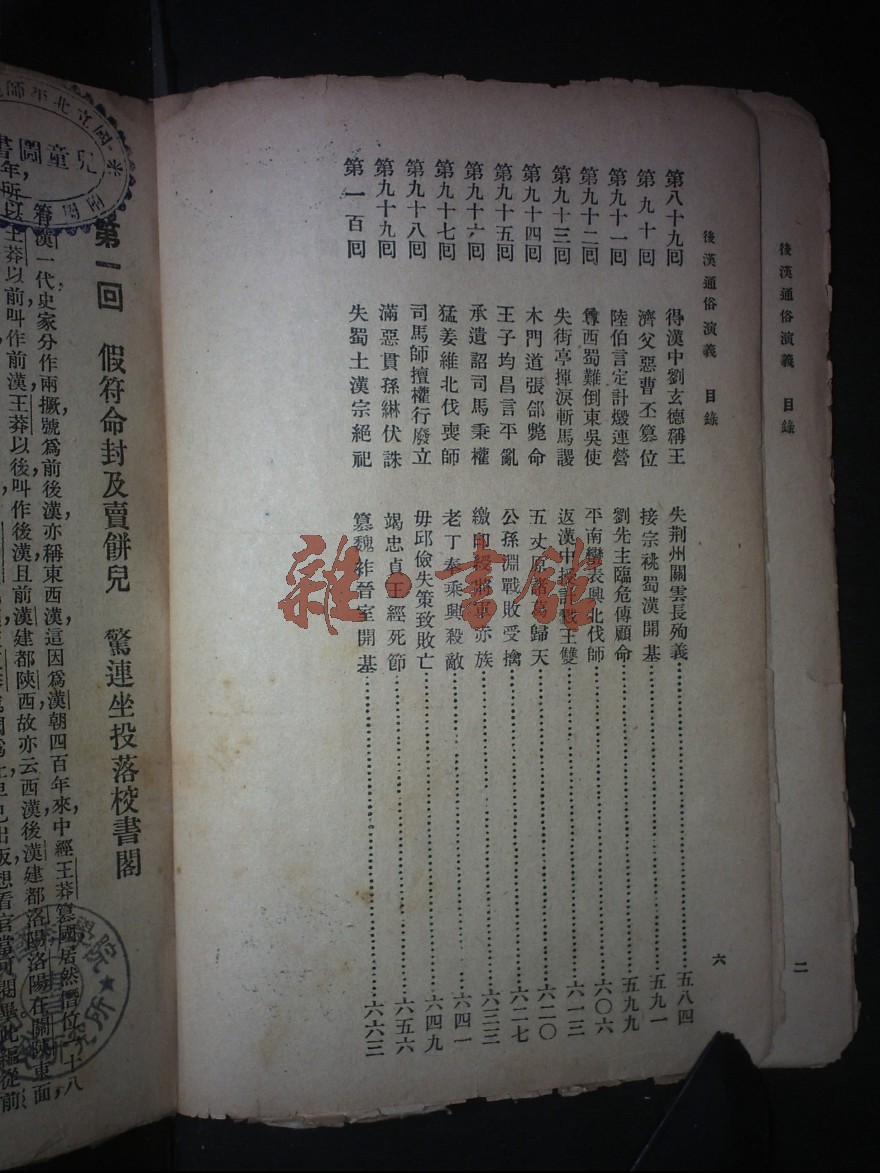 後漢通俗演義　目錄
二
後漢通俗演義　目錄
六
第八十九回　得漢中劉玄德稱王　失荆州關雲長殉義……五八四
第九十回　濟父惡曹丕篡位　接宗祧蜀漢開基……五九一
第九十一回　陸伯言定計燬連營　劉先主臨危傳顧命……五九九
第九十二回　尊西蜀難倒東吳使　平南蠻表興北伐師……六〇六
第九十三回　失街亭揮淚斬馬謖　返漢中授計戮王雙……六一三
第九十四回　木門道張郃斃命　五丈原諸葛歸天……六二〇
第九十五回　王子均昌言平亂　公孫淵戰敗受擒……六二七
第九十六回　承遺詔司馬秉權　繳印綬將軍赤族……六三三
第九十七回　猛姜維北伐喪師　老丁奉乘興殺敵……六四一
第九十八回　司馬師擅權行廢立　毋邱儉失策致敗亡……六四九
第九十九回　滿惡貫孫綝伏誅　竭忠貞王經死節……六五六
第一百回　失蜀土漢宗絕祀　篡魏祚晉室開基……六六三
雜·書館
第一回　假符命封及賣餅兒　驚連坐投落校書閣
漢一代史家分作兩撅，號爲前後漢，亦稱東西漢，這因爲漢朝四百年來，中經王莽篡國，居然僭位十八
年，所以王莽以前，叫作前漢，王莽以後，叫作後漢，且前漢建都陝西，故亦云西漢，後漢建都洛陽，洛陽在關陝東面，
國立北平師
兒童圖書